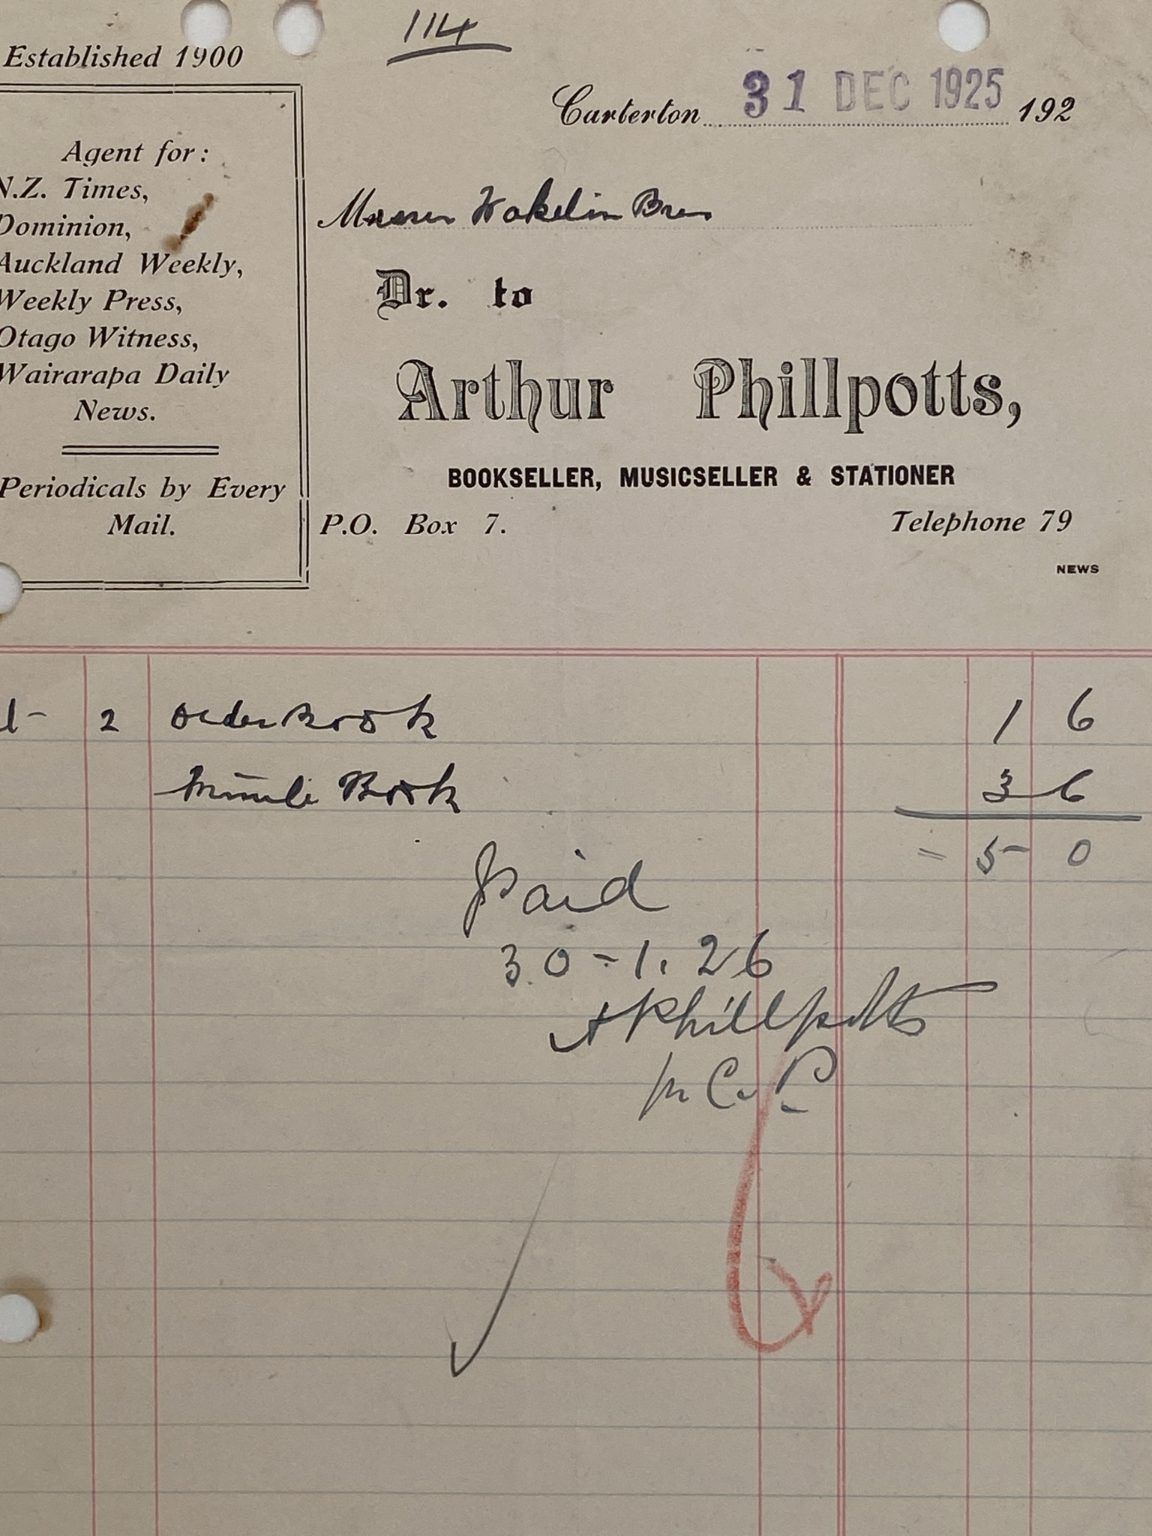 114
Established 1900
Carterton 31 DEC 1925 192
Agent for:
N.Z. Times,
Dominion,
Auckland Weekly,
Weekly Press,
Otago Witness,
Wairarapa Daily
News.
Periodicals by Every
Mail.
Messrs Wakelin Bros
Dr. to
Arthur Phillpotts,
BOOKSELLER, MUSICSELLER & STATIONER
P.O. Box 7. Telephone 79
NEWS
2 Order Book 1 6
Minute Book 3 6
= 5 0
Paid
30-1.26
A Phillpotts
C. P.